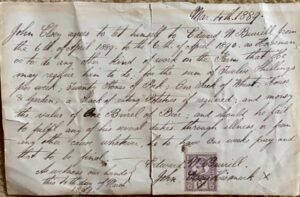 Mar 4th 1889
John Elvy agrees to let himself to Edward W Burrill from
the 6th of April 1889 to the 6th of April 1890, as Horseman
or to do any other kind of work on the Farm that He
may require him to do, for the sum of Twelve Shillings
per week, Twenty Stones of Pork, One Sack of Wheat, House
& garden, a Rood of Potatoes if required, and money
the value of One Barrel of Beer, and should he fail
to fulfil any of his usual duties through illness or from
any other cause whatever, he to have one weeks pay and
that to be final
As witness our hands
this 4th day of March
1889
Edward W Burrill
John X